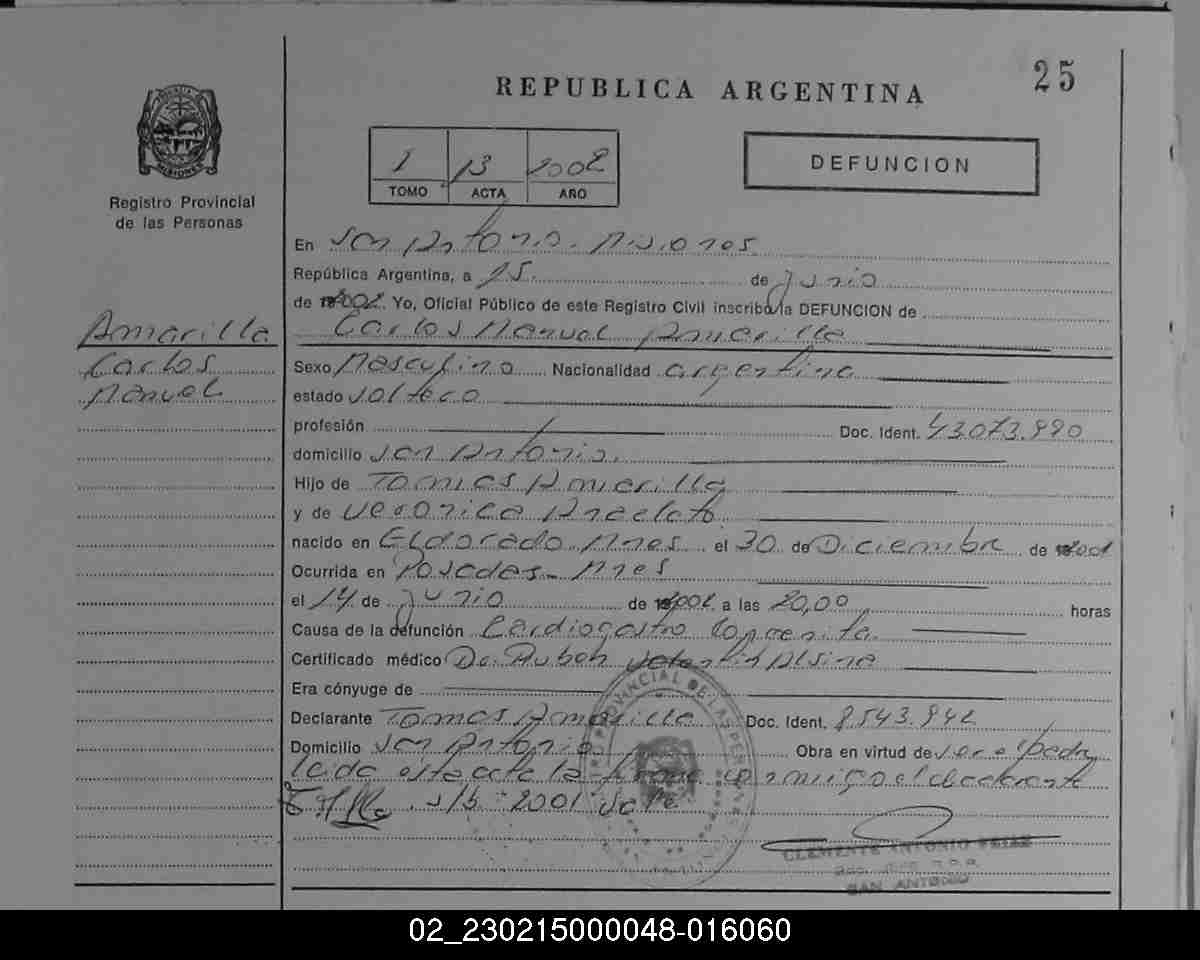 25
REPUBLICA ARGENTINA
DEFUNCION
1 13 2002
TOMO ACTA AÑO
Registro Provincial
de las Personas
Amarilla
Carlos
Manuel
En San Antonio. Misiones
República Argentina, a 15 de Junio
de 2002 Yo, Oficial Público de este Registro Civil inscribo la DEFUNCION de
Carlos Manuel Amarilla
Sexo Masculino Nacionalidad argentina
estado soltero
profesión Doc. Ident. 43.073.990
domicilio San Antonio.
Hijo de Tomas Amarilla
y de Veronica
nacido en Eldorado Mnes el 30 de Diciembre de 2001
Ocurrida en Posadas - Mnes
el 14 de Junio de 2002 a las 20,00 horas
Causa de la defunción
Certificado médico Dr. Ruben Valentin Alsina
Era cónyuge de
Declarante Tomas Amarilla Doc. Ident. 8.543.942
Domicilio San Antonio Obra en virtud de ser el padre
leida este acta la firma conmigo el declarante
s/b - 2001 Vale
REGISTRO PROVINCIAL DE LAS PERSONAS
CLEMENTE ANTONIO
SAN ANTONIO
02_230215000048-016060